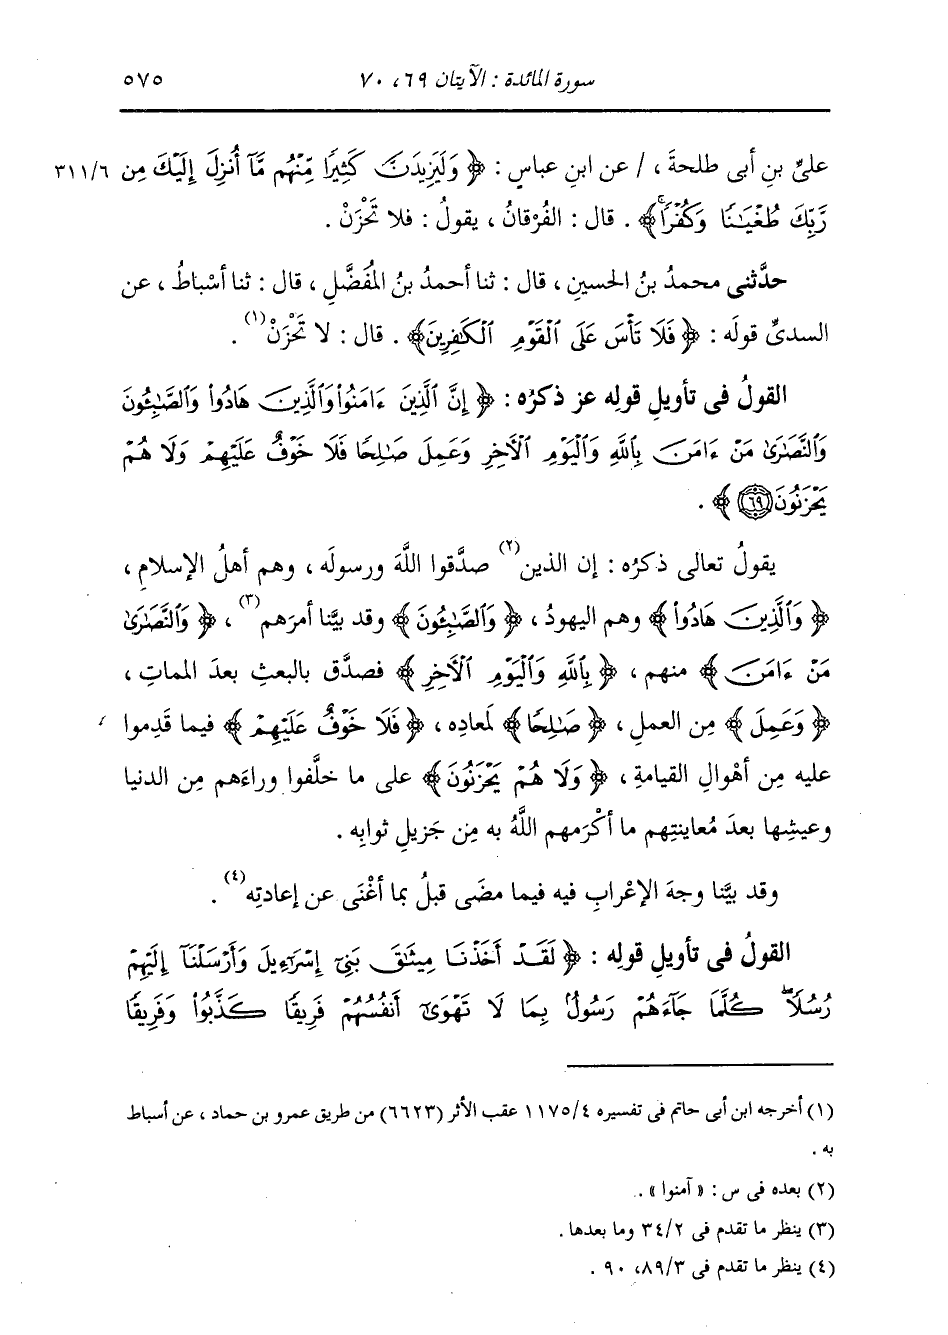 سورة المائدة : الآيتان ٦٩، ٧٠ ٥٧٥
علىِّ بنِ أبى طلحةَ ، / عن ابنِ عباسٍ : ﴿ وَلَيَزِيدَنَّ كَثِيرًا مِّنْهُم مَّآ أُنزِلَ إِلَيْكَ مِن ٣١١/٦
رَّبِّكَ طُغْيَـٰنًا وَكُفْرًا ﴾ . قال : الفُرْقانُ ، يقولُ : فلا تَحْزَنْ .
حدَّثنى محمدُ بنُ الحسينِ ، قال : ثنا أحمدُ بنُ المُفَضَّلِ ، قال : ثنا أسْباطُ ، عن
السدىِّ قولَه : ﴿ فَلَا تَأْسَ عَلَى ٱلْقَوْمِ ٱلْكَـٰفِرِينَ ﴾ . قال : لا تَحْزَنْ(١) .
القولُ فى تأويلِ قولِه عز ذكرُه : ﴿ إِنَّ ٱلَّذِينَ ءَامَنُوا۟ وَٱلَّذِينَ هَادُوا۟ وَٱلصَّـٰبِـُٔونَ
وَٱلنَّصَـٰرَىٰ مَنْ ءَامَنَ بِٱللَّهِ وَٱلْيَوْمِ ٱلْـَٔاخِرِ وَعَمِلَ صَـٰلِحًا فَلَا خَوْفٌ عَلَيْهِمْ وَلَا هُمْ
يَحْزَنُونَ ٦٩ ﴾ .
يقولُ تعالى ذكرُه : إن الذين(٢) صدَّقوا اللَّهَ ورسولَه ، وهم أهلُ الإسلامِ ،
﴿ وَٱلَّذِينَ هَادُوا۟ ﴾ وهم اليهودُ ، ﴿ وَٱلصَّـٰبِـُٔونَ ﴾ وقد بيَّنا أمرَهم(٣) ، ﴿ وَٱلنَّصَـٰرَىٰ
مَنْ ءَامَنَ ﴾ منهم ، ﴿ بِٱللَّهِ وَٱلْيَوْمِ ٱلْـَٔاخِرِ ﴾ فصدَّق بالبعثِ بعدَ المماتِ ،
﴿ وَعَمِلَ ﴾ مِن العملِ ، ﴿ صَـٰلِحًا ﴾ لمَعادِه ، ﴿ فَلَا خَوْفٌ عَلَيْهِمْ ﴾ فيما قَدِموا
عليه مِن أهْوالِ القيامةِ ، ﴿ وَلَا هُمْ يَحْزَنُونَ ﴾ على ما خلَّفوا وراءَهم مِن الدنيا
وعيشِها بعدَ مُعاينتِهم ما أكْرَمهم اللَّهُ به مِن جَزيلِ ثوابِه .
وقد بيَّنا وجهَ الإعْرابِ فيه فيما مضَى قبلُ بما أغْنَى عن إعادتِه(٤) .
القولُ فى تأويلِ قولِه : ﴿ لَقَدْ أَخَذْنَا مِيثَـٰقَ بَنِىٓ إِسْرَٰٓءِيلَ وَأَرْسَلْنَآ إِلَيْهِمْ
رُسُلًا ۖ كُلَّمَا جَآءَهُمْ رَسُولٌۢ بِمَا لَا تَهْوَىٰٓ أَنفُسُهُمْ فَرِيقًا كَذَّبُوا۟ وَفَرِيقًا
(١) أخرجه ابن أبى حاتم فى تفسيره ١١٧٥/٤ عقب الأثر (٦٦٢٣) من طريق عمرو بن حماد ، عن أسباط
به .
(٢) بعده فى س : « آمنوا » .
(٣) ينظر ما تقدم فى ٣٤/٢ وما بعدها .
(٤) ينظر ما تقدم فى ٨٩/٣، ٩٠ .